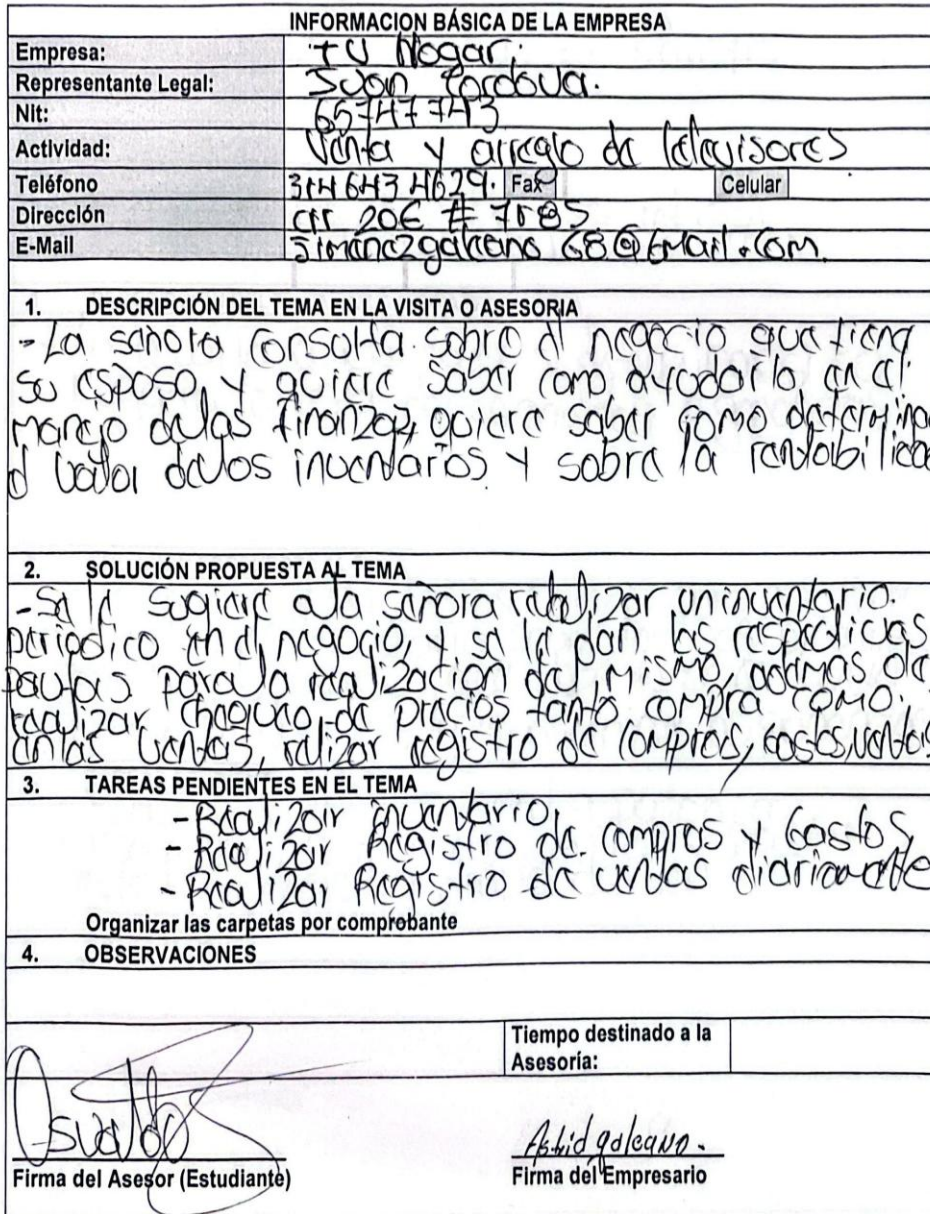 INFORMACION BÁSICA DE LA EMPRESA
Empresa: TU Hogar.
Representante Legal: Juan Cordova.
Nit: 65747743
Actividad: Venta y arreglo de televisores
Teléfono 314 643 4629. Fax Celular
Dirección crr 20E # 7685
E-Mail Jimenezgaleano 68@Gmail.com.
1. DESCRIPCIÓN DEL TEMA EN LA VISITA O ASESORIA
- La señora consulta sobre el negocio que tiene
su esposo, y quiere saber como ayudarlo en el
manejo de las finanzas, quiere saber como determinar
el valor de los inventarios y sobre la rentabilidad
2. SOLUCIÓN PROPUESTA AL TEMA
- Se le sugiere a la señora realizar un inventario.
periodico en el negocio, y se le dan las respectivas
pautas para la realización del mismo, ademas de
realizar chequeo de precios tanto compra como.
en las ventas, relizar registro de compras, costos, ventas
3. TAREAS PENDIENTES EN EL TEMA
- Realizar inventario,
- Realizar Registro de compras y Gastos,
- Realizar Registro de ventas diariamente
Organizar las carpetas por comprobante
4. OBSERVACIONES
Tiempo destinado a la
Asesoría:
Osvaldo
Astrid galeano.
Firma del Asesor (Estudiante) Firma del Empresario